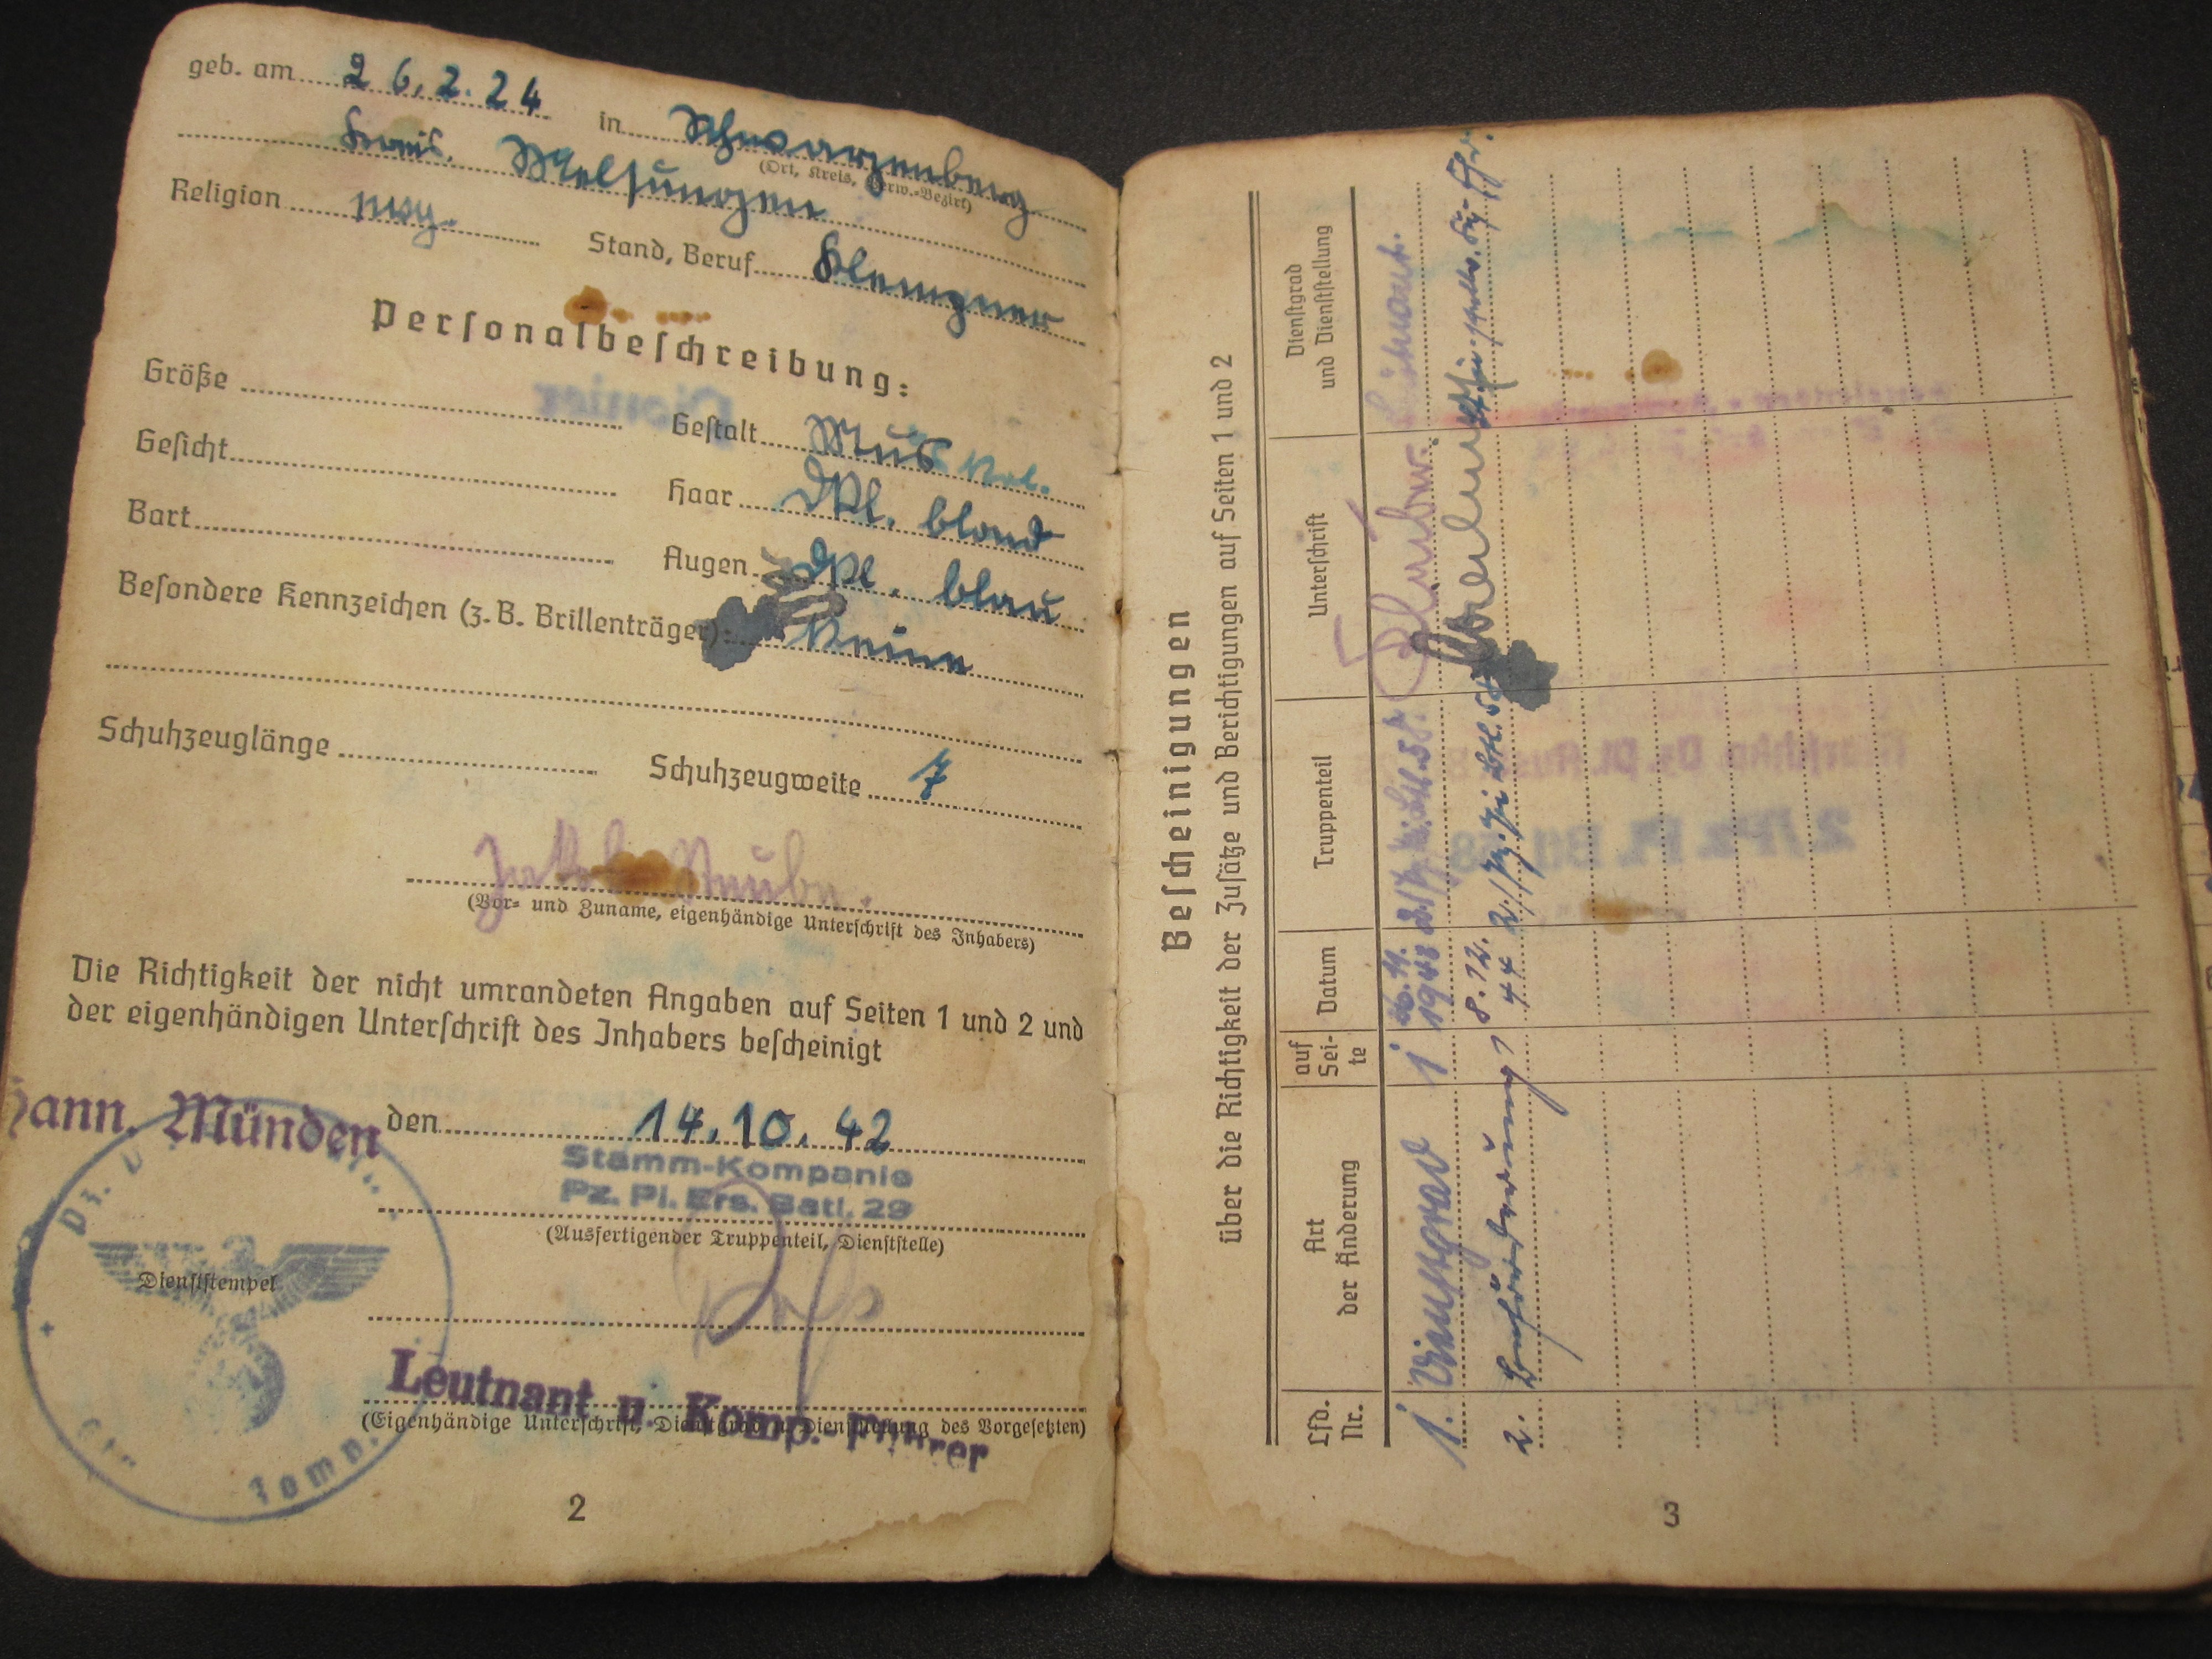 geb. am 26.2.24 in Schwarzenberg
(Ort, Kreis, Verw.-Bezirk)
Kreis. Melsungen
Religion evg. Stand, Beruf Klempner
Personalbeschreibung:
Größe Gestalt Muskul.
Gesicht Haar Dkl. blond
Bart Augen Dkl. blau
Besondere Kennzeichen (z. B. Brillenträger): Keine
Schuhzeuglänge Schuhzeugweite 7
(Vor- und Zuname, eigenhändige Unterschrift des Inhabers)
Die Richtigkeit der nicht umrandeten Angaben auf Seiten 1 und 2 und
der eigenhändigen Unterschrift des Inhabers bescheinigt
Hann. Münden den 14.10.42
Stamm-Kompanie
Pz. Pi. Ers. Batl. 29
(Ausfertigender Truppenteil, Dienststelle)
Dienststempel
Leutnant u. Komp.-Führer
(Eigenhändige Unterschrift, Dienstgrad u. Dienststellung des Vorgesetzten)
2
Bescheinigungen
über die Richtigkeit der Zusätze und Berichtigungen auf Seiten 1 und 2
Lfd. Nr. Art der Änderung auf Seite Datum Truppenteil Unterschrift Dienstgrad und Dienststellung
1. Dienstgrad 1 1943
2. Beförderung 1 8.12.44 2./Pz. Pi. Btl.
3